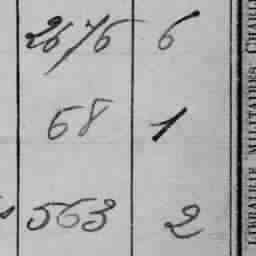 2676 6
68 1
563 2
LIBRAIRIE MILITAIRE CHARL